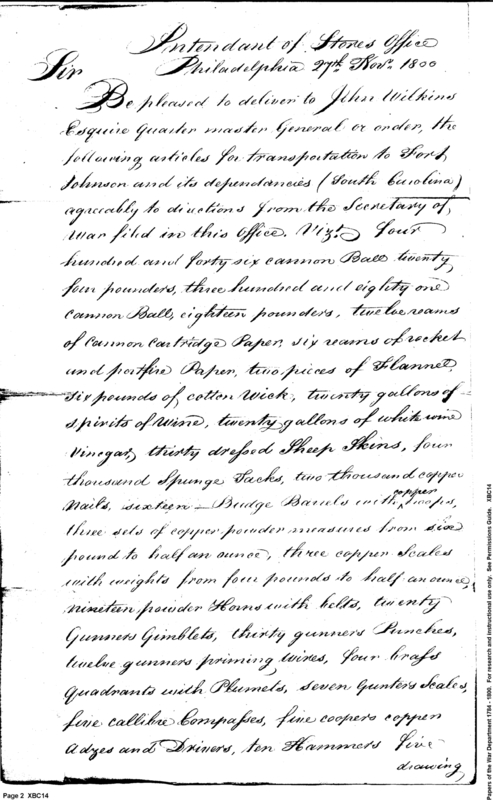 Intendant of Stores Office
Philadelphia 27th Novr. 1800
Sir
Be pleased to deliver to John Wilkins
Esquire Quarter master General or order, the
following articles for transportation to Fort
Johnson and its dependancies (South Carolina)
agreeably to directions from the Secretary of
War filed in this Office. Vizt. four
hundred and forty six cannon Ball twenty
four pounders, three hundred and eighty one
cannon Ball, eighteen pounders, twelve reams
of Cannon Cartridge Paper, six reams of rocket
and portfire Paper, two pieces of Flannel,
six pounds of cotten Wick, twenty gallons of
spirits of Wine, twenty gallons of white wine
Vinegar, thirty dressed Sheep Skins, four
thousand Spunge Tacks, two thousand copper
Nails, sixteen Budge Barrels with copper hoops,
three sets of copper powder measures from six
pound to half an ounce, three copper Scales
with weights from four pounds to half an ounce,
nineteen powder Horns with belts, twenty
Gunners Gimblets, thirty gunners Punches,
twelve gunners priming wires, four brass
Quadrants with Plumets, seven Gunters Scales,
five callibre Compasses, five coopers copper
Adzes and Drivers, ten Hammers five
drawing
Page 2 XBC14
Papers of the War Department 1784 - 1800. For research and instructional use only. See Permissions Guide. XBC14